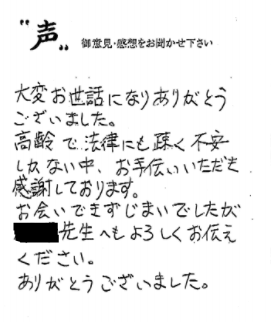 "声"
御意見・感想をお聞かせ下さい
大変お世話になりありがとう
ございました。
高齢で法律にも疎く不安
しかない中、お手伝いいただき
感謝しております。
お会いできずじまいでしたが
先生へもよろしくお伝え
ください。
ありがとうございました。